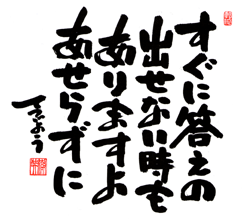 すぐに答えの
出せない時も
ありますよ
あせらずに
きよう